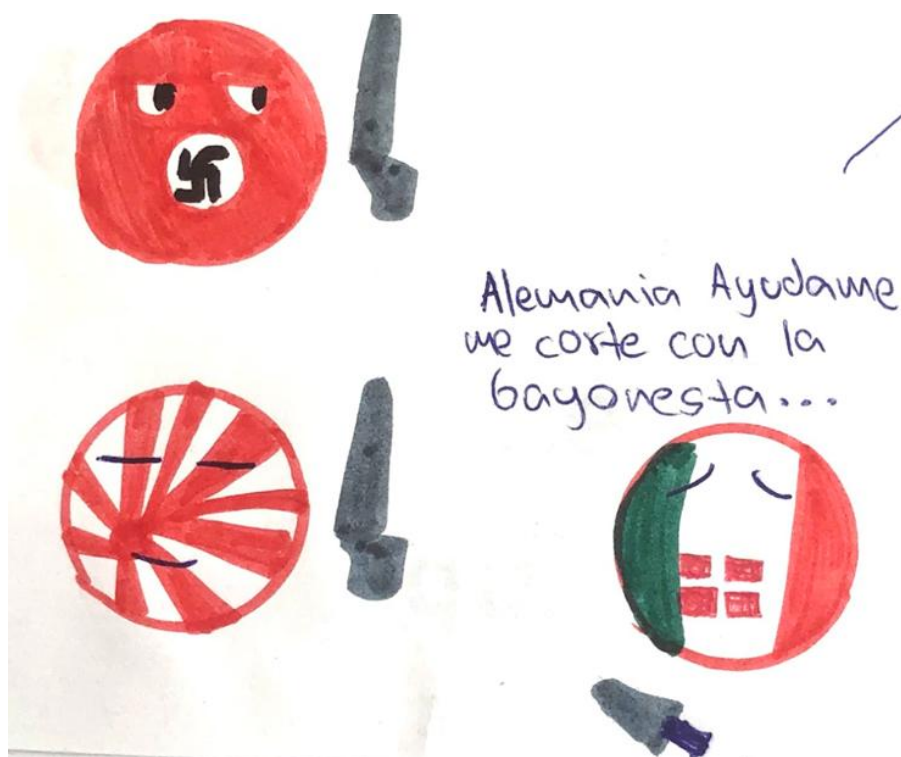 Alemania Ayudame
me corte con la
bayonesta...